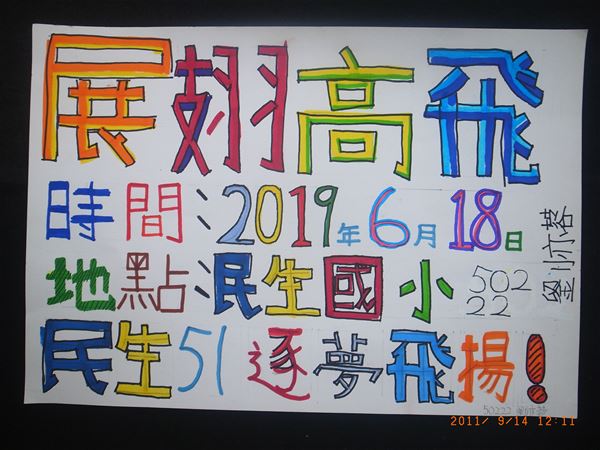 展翅高飛
時間：2019年6月18日
地點：泯生國小
502
22
劉亦蓉
民生51逐夢飛揚！
50222 劉亦蓉
2011/ 9/14 12:11